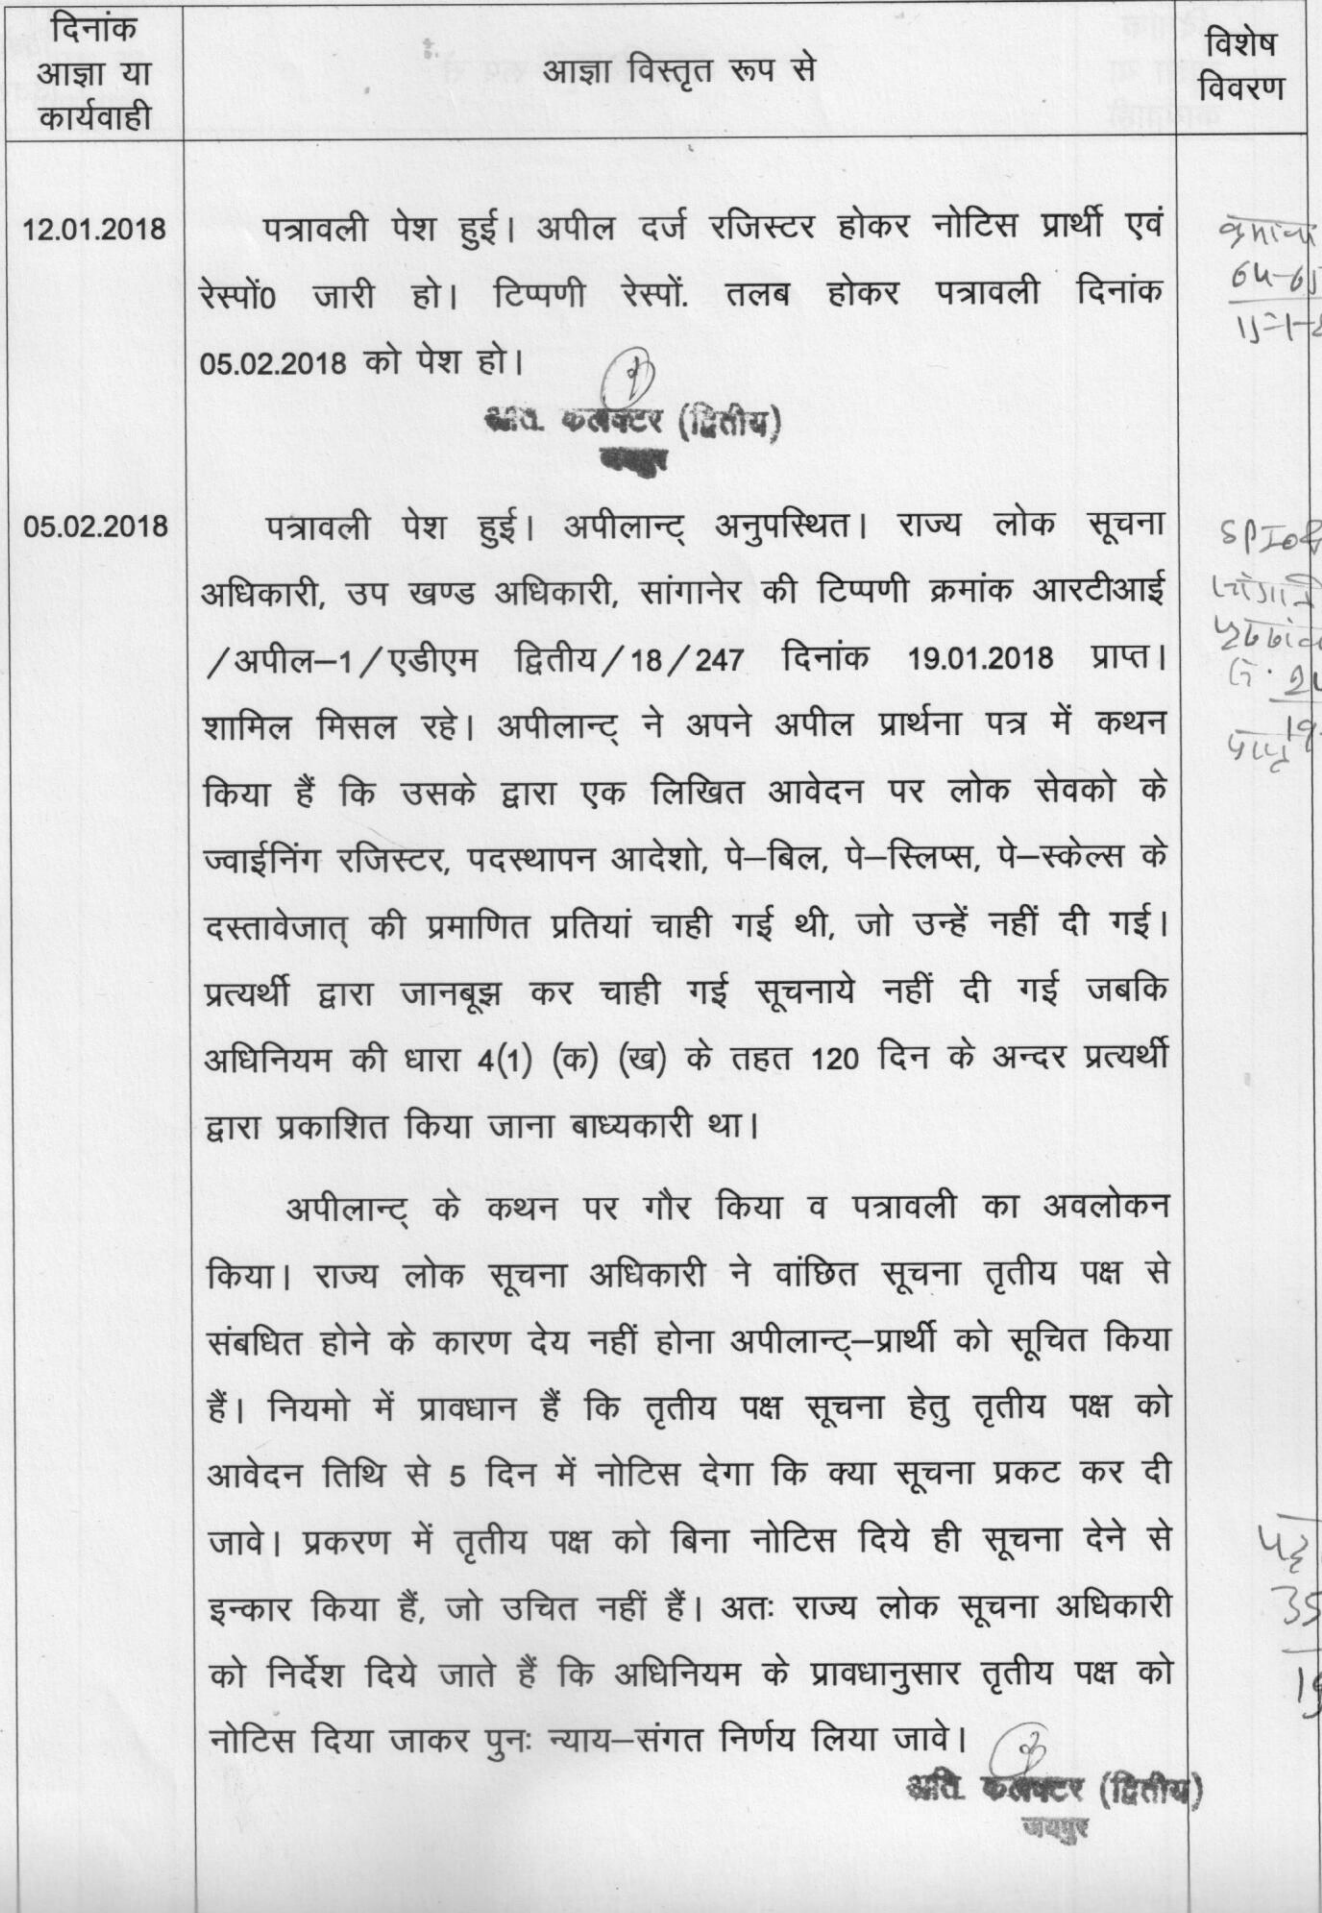 दिनांक
आज्ञा या
कार्यवाही
आज्ञा विस्तृत रूप से
विशेष
विवरण
12.01.2018
पत्रावली पेश हुई। अपील दर्ज रजिस्टर होकर नोटिस प्रार्थी एवं
रेस्पों0 जारी हो। टिप्पणी रेस्पों. तलब होकर पत्रावली दिनांक
05.02.2018 को पेश हो।
अति. कलक्टर (द्वितीय)
जयपुर
क्रमांक
64-65
05.02.2018
पत्रावली पेश हुई। अपीलान्ट् अनुपस्थित। राज्य लोक सूचना
अधिकारी, उप खण्ड अधिकारी, सांगानेर की टिप्पणी क्रमांक आरटीआई
/अपील–1/एडीएम द्वितीय/18/247 दिनांक 19.01.2018 प्राप्त।
शामिल मिसल रहे। अपीलान्ट् ने अपने अपील प्रार्थना पत्र में कथन
किया हैं कि उसके द्वारा एक लिखित आवेदन पर लोक सेवको के
ज्वाईनिंग रजिस्टर, पदस्थापन आदेशो, पे–बिल, पे–स्लिप्स, पे–स्केल्स के
दस्तावेजात् की प्रमाणित प्रतियां चाही गई थी, जो उन्हें नहीं दी गई।
प्रत्यर्थी द्वारा जानबूझ कर चाही गई सूचनाये नहीं दी गई जबकि
अधिनियम की धारा 4(1) (क) (ख) के तहत 120 दिन के अन्दर प्रत्यर्थी
द्वारा प्रकाशित किया जाना बाध्यकारी था।
अपीलान्ट् के कथन पर गौर किया व पत्रावली का अवलोकन
किया। राज्य लोक सूचना अधिकारी ने वांछित सूचना तृतीय पक्ष से
संबधित होने के कारण देय नहीं होना अपीलान्ट्–प्रार्थी को सूचित किया
हैं। नियमो में प्रावधान हैं कि तृतीय पक्ष सूचना हेतु तृतीय पक्ष को
आवेदन तिथि से 5 दिन में नोटिस देगा कि क्या सूचना प्रकट कर दी
जावे। प्रकरण में तृतीय पक्ष को बिना नोटिस दिये ही सूचना देने से
इन्कार किया हैं, जो उचित नहीं हैं। अतः राज्य लोक सूचना अधिकारी
को निर्देश दिये जाते हैं कि अधिनियम के प्रावधानुसार तृतीय पक्ष को
नोटिस दिया जाकर पुनः न्याय–संगत निर्णय लिया जावे।
अति. कलक्टर (द्वितीय)
जयपुर